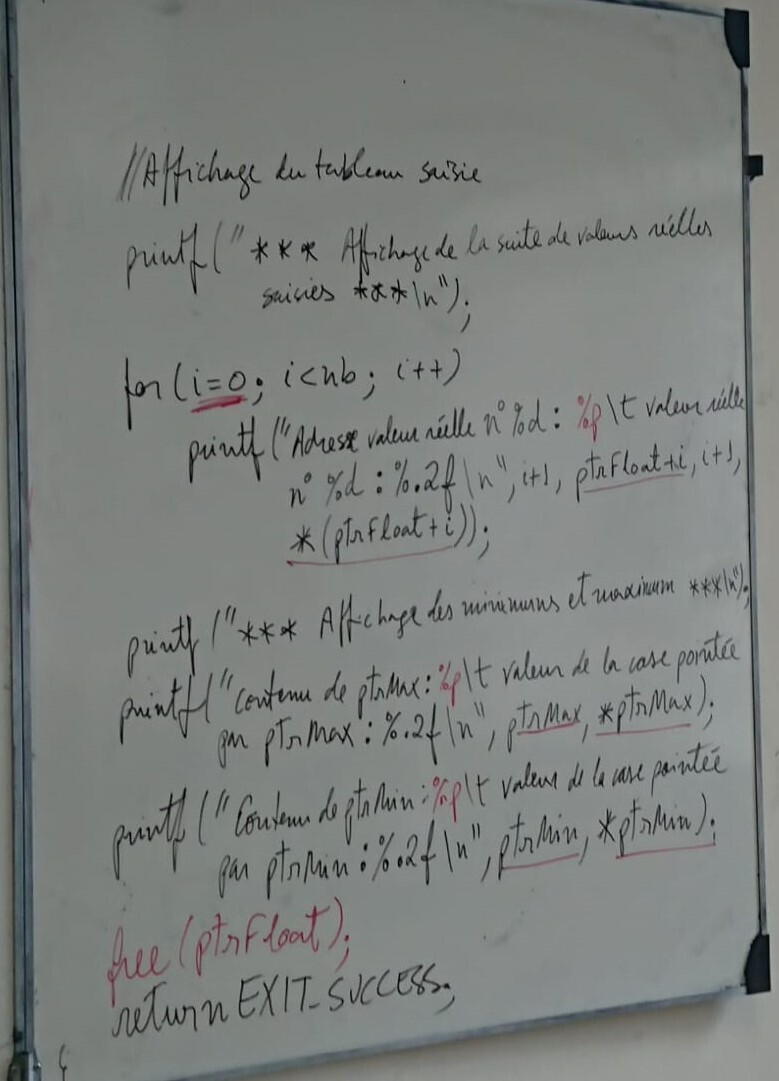 //Affichage du tableau saisie
printf("*** Affichage de la suite de valeurs réelles
saisies ***\n");
for(i=0; i<nb; i++)
printf("Adresse valeur réelle n°%d: %p\t valeur réelle
n° %d:%.2f\n", i+1, ptrFloat+i, i+1,
*(ptrFloat+i));
printf("*** Affichage des minimums et maximum ***\n");
printf("Contenu de ptrMax:%p\t valeur de la case pointée
par ptrMax:%.2f\n", ptrMax, *ptrMax);
printf("Contenu de ptrMin:%p\t valeur de la case pointée
par ptrMin:%.2f\n", ptrMin, *ptrMin);
free(ptrFloat);
return EXIT_SUCCESS;